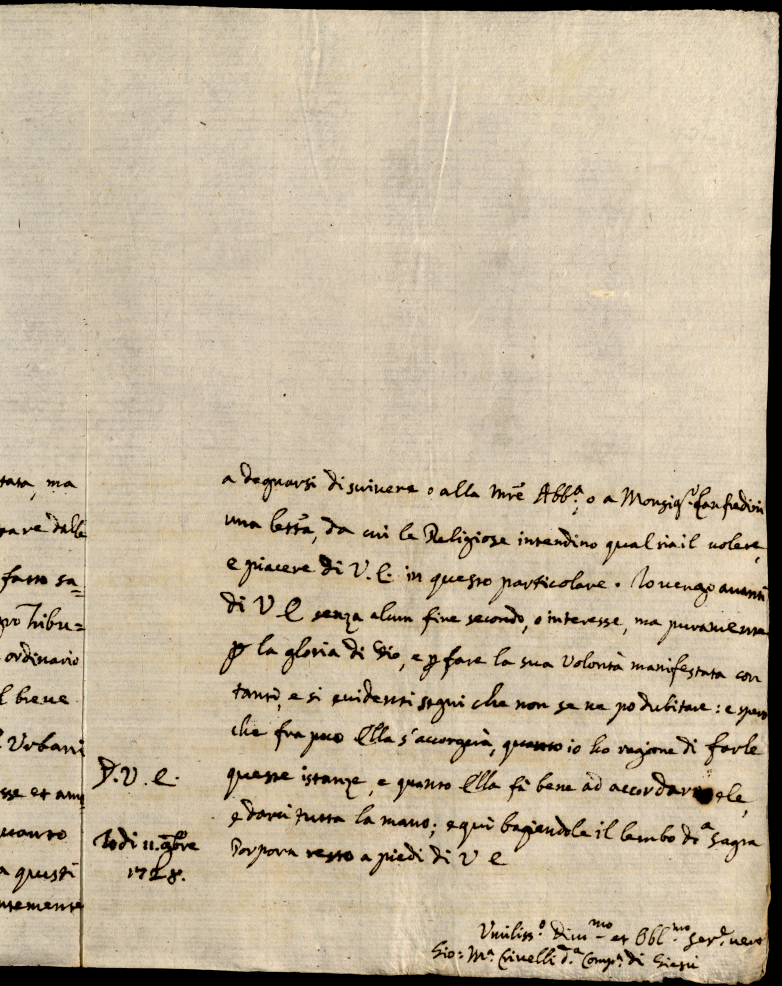 tata, ma
rare dalle
fatto sa=
pro Tribu=
ordinario
l breve
Urbani
sse et am
quanto
a questi
ntemente
D. V. E.
Todi 11. 9bre
1728.
a degnarsi di scrivere o alla Mre Abb.a, o a Monsig.r Lanfredini
una lettra, da cui le Religiose intendino qual sia il volere,
e piacere di V. E. in questo particolare. Io vengo avanti
di V E senza alcun fine secondo, o interesse, ma puramente
p la gloria di Dio, e p fare la sua Volontà manifestata con
tanti, e si evidenti segni che non se ne po dubitare: e spero
che fra poco Ella s'accorgerà, quanto io ho ragione di farle
queste istanze, e quanto Ella fà bene ad accordar ele,
e darci tutta la mano; e qui bagiendole il lembo d.a Sagra
Porpora resto a piedi di V E
Umiliss.o Divmo et Obl.mo Ser.e vero
Gio: M.a Crivelli d.a Comp.a di Giesù